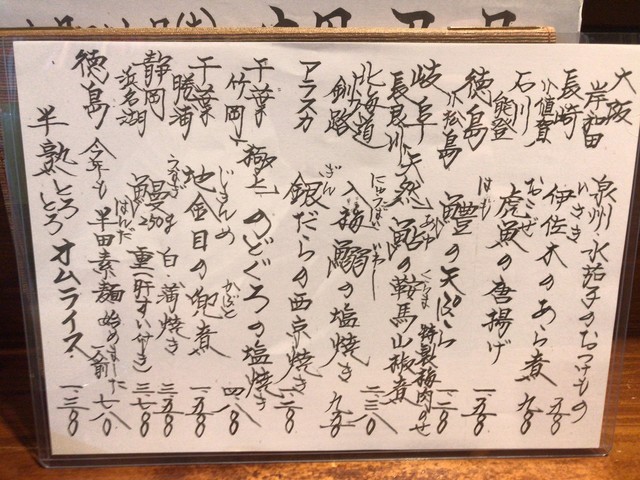 大阪 岸和田 泉州水茄子のおつけもの 五八〇
長崎 小値賀 伊佐木のあら煮 九八〇
いさき
石川 能登 虎魚の唐揚げ 一、五八〇
おこぜ
徳島 小松島 鱧の天ぷら 特製梅肉のせ 一、二八〇
はも
岐阜 長良川 天然鮎の鞍馬山椒煮 一、二三八〇
あゆ くらま
北海道 釧路 入梅鰯の塩焼き 九八〇
にゅうばい いわし
アラスカ 銀だらの西京焼き 一、二八〇
ぎん
千葉 竹岡 極上のどぐろの塩焼き 四、八〇
千葉 勝浦 地金目の兜煮 一、五八〇
じきんめ かぶと
静岡 浜名湖 鰻250g 白・蒲焼き 三、五八〇
うなぎ
重(肝すい付き) 三、七八〇
徳島 今年も半田素麺始めました 一人前 七八〇
はんだ
半熟とろとろオムライス 一、三八〇